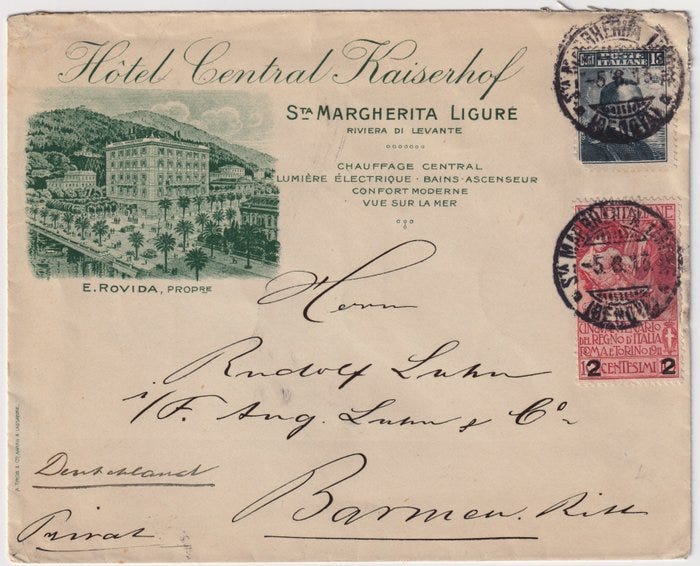 Hôtel Central Kaiserhof
STA MARGHERITA LIGURE
RIVIERA DI LEVANTE
CHAUFFAGE CENTRAL
LUMIÈRE ÉLECTRIQUE · BAINS · ASCENSEUR
CONFORT MODERNE
VUE SUR LA MER
E. ROVIDA, PROPRE
POSTE ITALIANE 15
STA MARGHERITA LIGURE
(GENOVA)
STA MARGHERITA LIGURE
(GENOVA)
CINQUANTENARIO
DEL REGNO D'ITALIA
ROMA E TORINO 1911
CENTESIMI
2 2
Herrn
Rudolf Luhn
i/F. Aug. Luhn & Co.
Deutschland
Barmen. Ritt
Privat